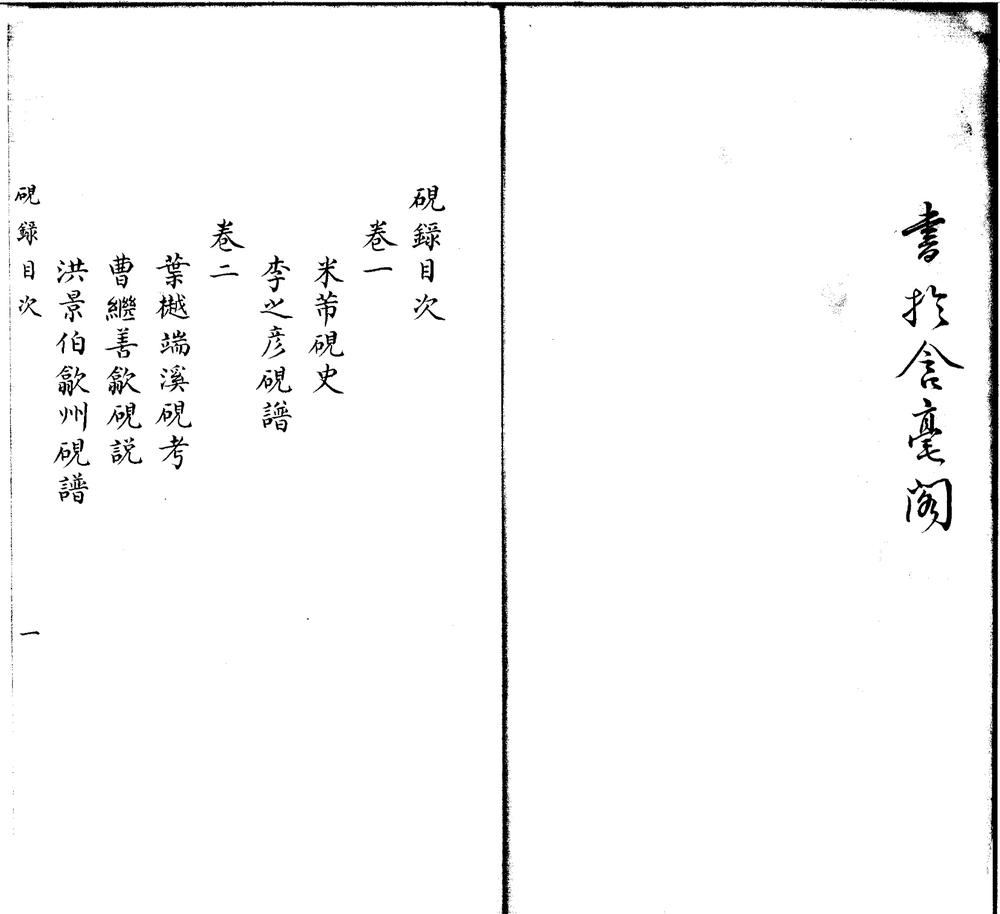 書於含毫閣
硯録目次
卷一
米芾硯史
李之彦硯譜
卷二
葉樾端溪硯考
曹繼善歙硯説
洪景伯歙州硯譜
硯録目次
一